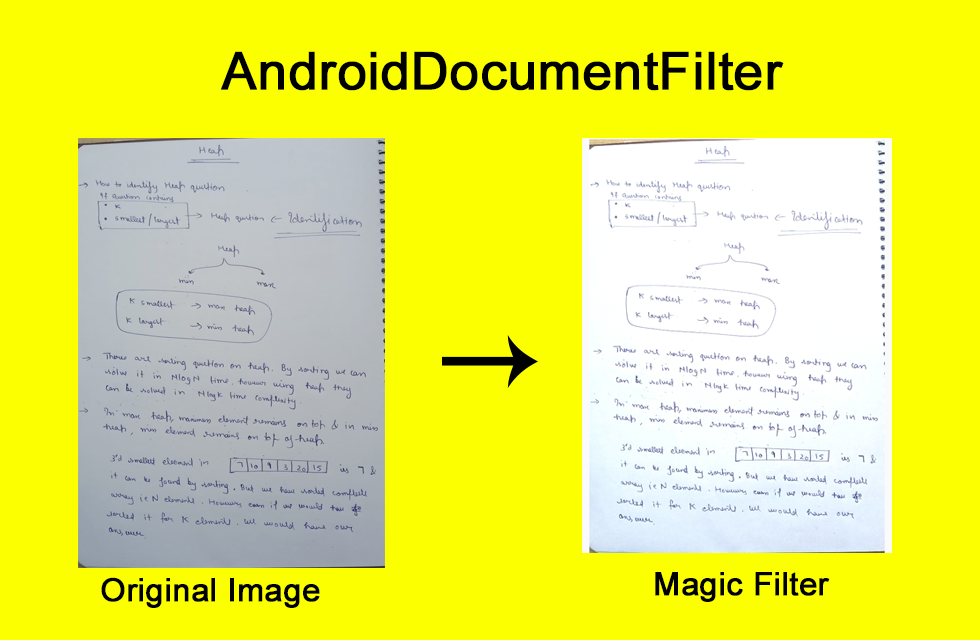 AndroidDocumentFilter
Heap
→ How to identify Heap qustion
If qustion contains
• K
• smallest/largest → Heap qustion ← Identification
Heap
min max
K smallest → max heap
K largest → min heap
→ There are sorting qustion on heap. By sorting we can
solve it in NlogN time, however using heap they
can be solved in Nlogk time complexity.
→ In max heap, maximum element remains on top & in min
heap, min element remains on top of heap.
3'd smallest element in 7 10 9 3 20 15 is 7 &
it can be found by sorting. But we have sorted complete
array i.e N elements. However even if we would
sorted it for K element. We would have our
answer
Heap
→ How to identify Heap qustion
If qustion contains
• K
• smallest/largest → Heap qustion ← Identification
Heap
min max
K smallest → max heap
K largest → min heap
→ There are sorting qustion on heap. By sorting we can
solve it in NlogN time, however using heap they
can be solved in Nlogk time complexity.
→ In max heap, maximum element remains on top & in min
heap, min element remains on top of heap.
3'd smallest element in 7 10 9 3 20 15 is 7 &
it can be found by sorting. But we have sorted complete
array i.e N elements. However even if we would
sorted it for K element. We would have our
answer
Original Image
Magic Filter